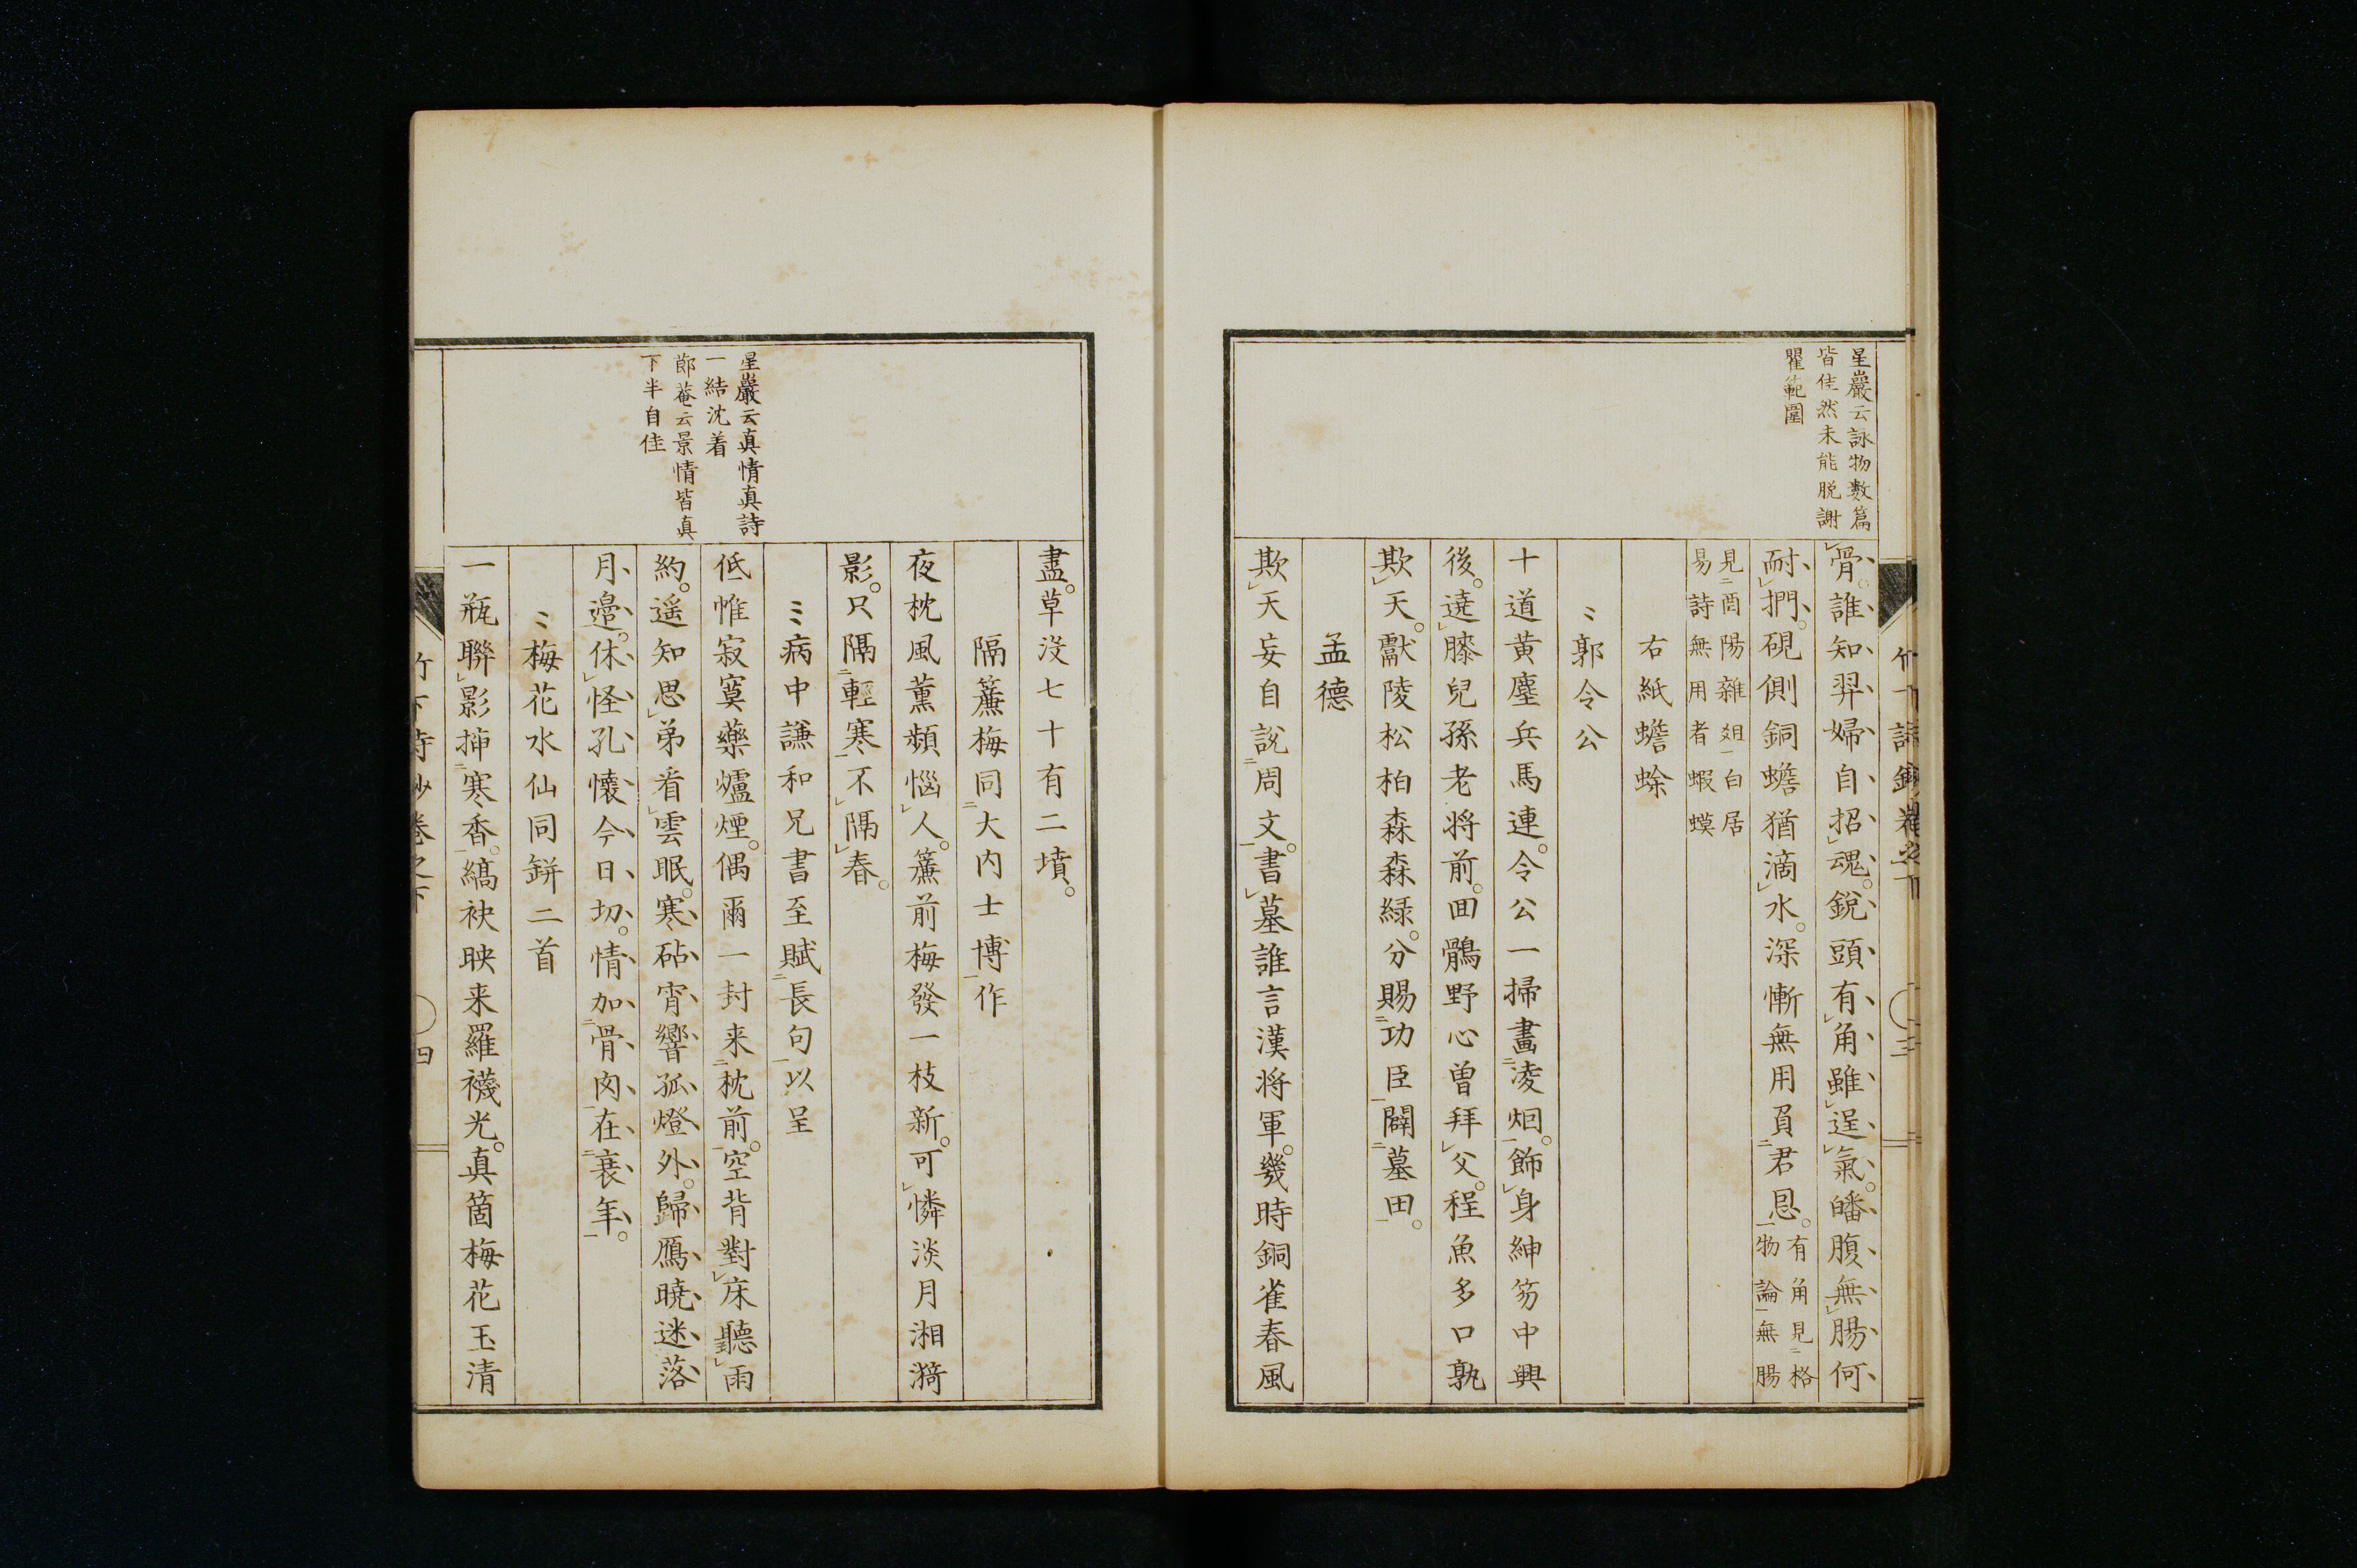 星巖云詠物數篇
皆佳然未能脱謝
瞿範圍
骨。誰知羿婦自招魂。銳頭有角雖逞氣。皤腹無腸何
耐捫。硯側銅蟾猶滴水。深慚無用負君恩。有角見格物論無腸
見酉陽雜俎白居
易詩無用者蝦蟆
右紙蟾蜍
郭令公
十道黄塵兵馬連。令公一掃畫凌烟。飾身紳笏中興
後。遶膝兒孫老将前。囬鶻野心曽拜父。程魚多口孰
欺天。獻陵松柏森森緑。分賜功臣闢墓田。
孟德
欺天妄自說周文。書墓誰言漢将軍。幾時銅雀春風
盡。草沒七十有二墳。
隔簾梅同大内士博作
夜枕風薫頻惱人。簾前梅發一枝新。可憐淡月湘漪
影。只隔輕寒不隔春。
病中謙和兄書至賦長句以呈
低帷寂寞藥爐煙。偶爾一封来枕前。空背對床聽雨
約。遥知思弟看雲眠。寒砧宵響孤燈外。歸鴈曉迷落
月邉。休怪孔懷今日切。情加骨肉在衰年。
梅花水仙同缾二首
一瓶聯影挿寒香。縞袂映来羅襪光。真箇梅花玉清
星巖云真情真詩
一結沈着
節菴云景情皆真
下半自佳
竹下詩鈔卷之下
三
竹下詩鈔卷之下
四